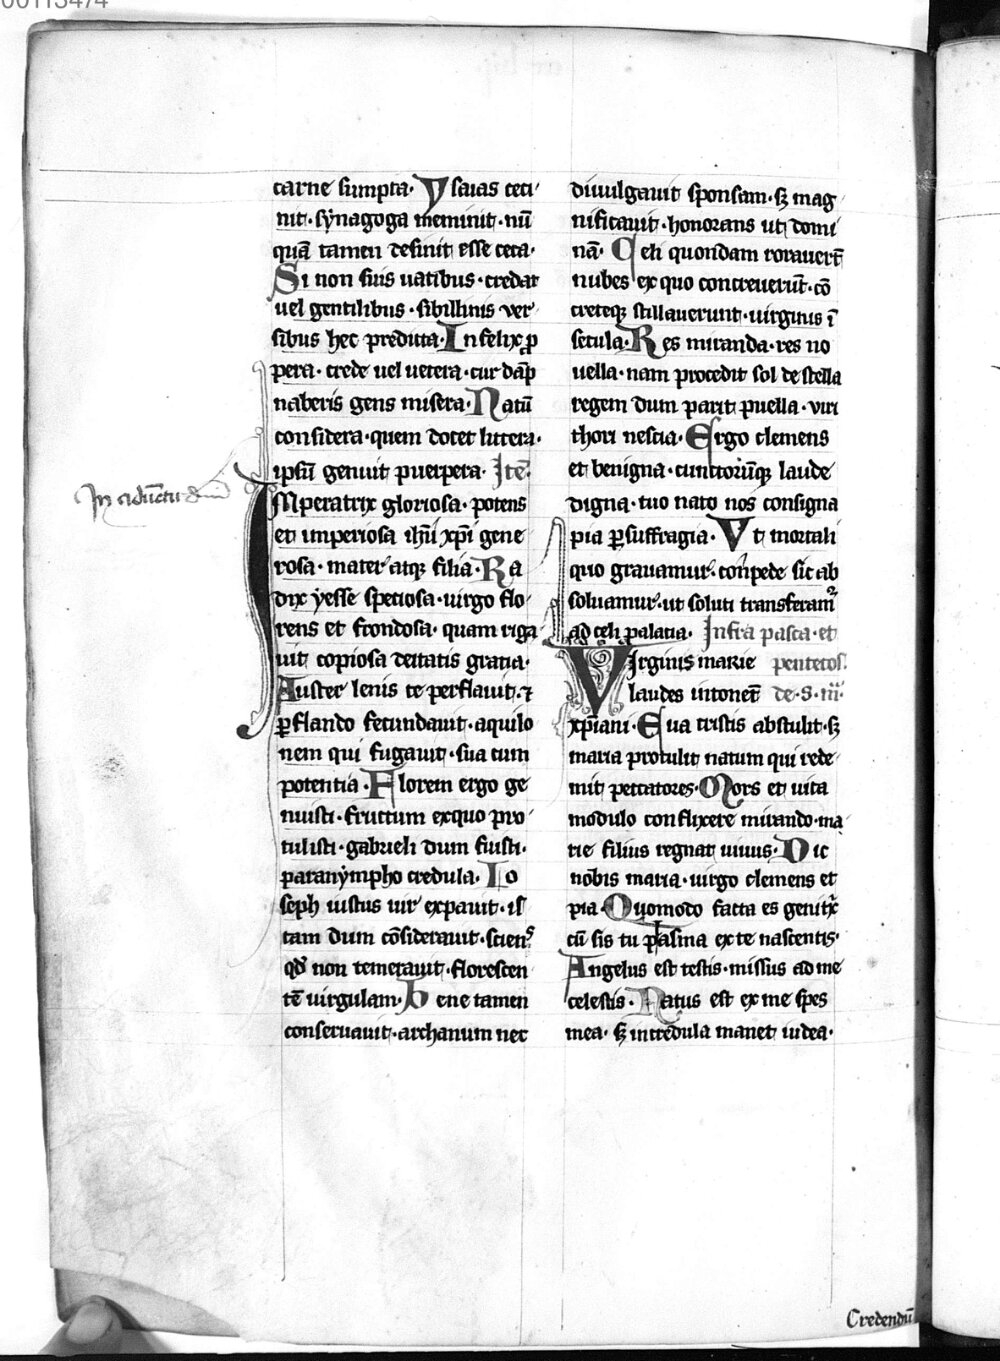 00113474
carne sumpta· Ysaias ceci
nit· synagoga meminit· nū
quā tamen desinit esse ceca·
Si non suis uatibus· credat
uel gentilibus· sibillinis ver
sibus hec predicta· Infelix ꝓ
pera· crede uel uetera· cur dāp
naberis gens misera· Natū
considera· quem docet littera·
ipsū genuit puerpera· Itē·
Imperatrix gloriosa· potens
et imperiosa ihū xp̄i gene
rosa· mater atqꝫ filia· Ra
dix yesse speciosa· uirgo flo
rens et frondosa· quam riga
uit copiosa deitatis gratia·
Auster lenis te perflauit· ⁊
ꝑflando fecundauit· aquilo
nem qui fugauit· sua cum
potentia· Florem ergo ge
nuisti· fructum exquo pro
tulisti· gabrieli dum fuisti·
paranympho credula· Io
seph iustus uir expauit· is
tam dum cōsiderauit· sciens
qd̄ non temerauit· florescen
tē uirgulam· Bene tamen
conseruauit· archanum nec
In aduētu dn̄i
diuulgauit sponsam· sꝫ mag
nificauit· honorans ut domi
nā· Celi quondam rorauerūt
nubes ex quo concreuerūt· cō
creteqꝫ stillauerunt· uirginis ī
secula· Res miranda· res no
uella· nam procedit sol de stella
regem dum parit puella· viri
thori nescia· Ergo clemens
et benigna· cunctorūqꝫ laude
digna· tuo nato nos consigna
pia ꝑ suffragia· Vt mortali
quo grauamur· conpede sic ab
soluamur· ut soluti transferamur
ad celi palatia· Infra pasca· et
Virginis marie pentecos·
laudes intonēt de· S· m̄·
xp̄iani· Eua tristis abstulit· sꝫ
maria protulit natum qui rede
mit peccatores· Mors et uita
modulo conflixere mirando· ma
rie filius regnat uiuus· Dic
nobis maria· uirgo clemens et
pia· Quomodo facta es genitx̄
cū sis tu plasma ex te nascentis·
Angelus est testis· missus ad me
celestis· Natus est ex me spes
mea· sꝫ incredula manet iudea·
Credendū